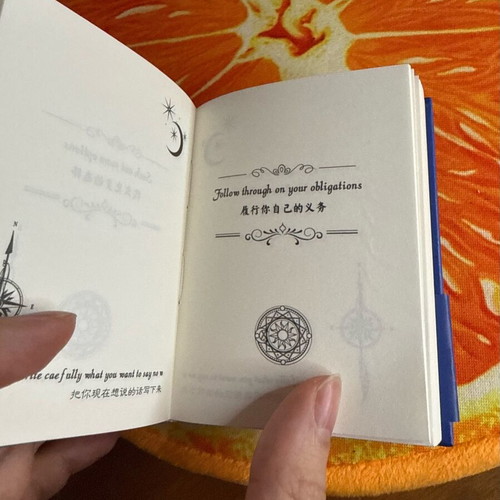 caefully what you want to say now
把你现在想说的话写下来
Follow through on your obligations
履行你自己的义务